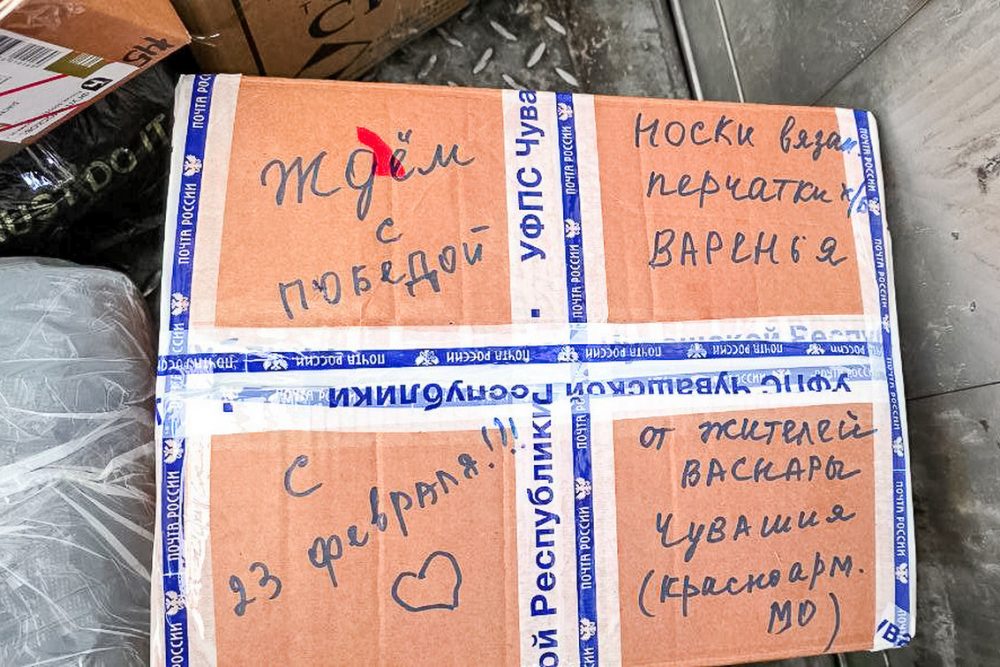 445
Ждём
с
ПОБЕДОЙ
НОСКИ вязан
перчатки х/б
ВАРЕНЬЯ
УФПС Чува
ПОЧТА РОССИИ
УФПС Чувашской Республики
С
23 февраля!!!
от жителей
ВАСКАРЫ
Чувашия
(красноарм.
МО)
ой Республики